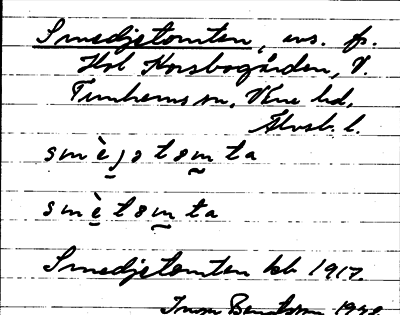 Smedjetomten, avs. fr.
Hol Korsbogården, V.
Tunhems sn, Väne hd,
Älvsb. l.
smè̠jɘtɘm̰ta
smè̠tɘm̰ta
Smedjetomten hb 1917.
Bengtsson